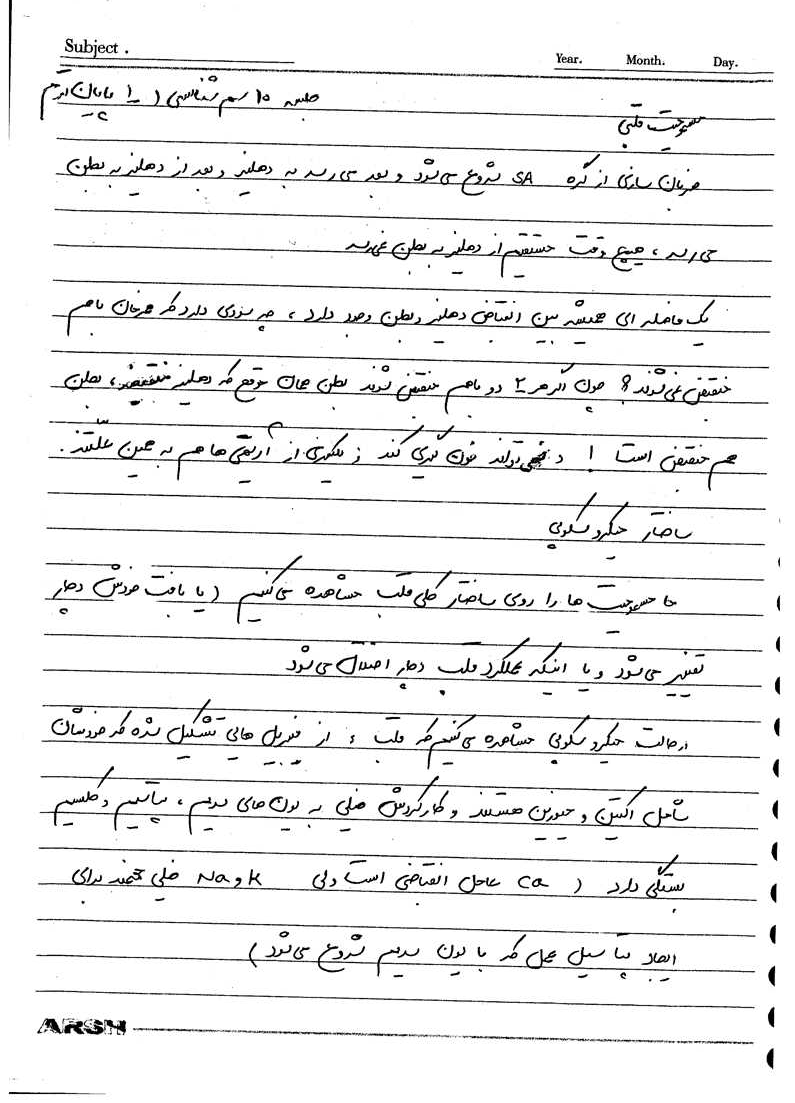 Subject .
Year. Month. Day.
جلسه 10 سم شناسی ( تا پایان ترم
مسمومیت قلبی
ضربان سازی از گره SA شروع می شود و بعد می رسد به دهلیز و بعد از دهلیز به بطن
می رسد ، هیچ وقت مستقیم از دهلیز به بطن نمی رسد
یک فاصله ای همیشه بین انقباض دهلیز و بطن وجود دارد ، چه سودی دارد که همزمان باهم
منقبض نمی شوند ؟ چون اگر هر 2 دو باهم منقبض شوند بطن همان موقع که دهلیز منقبضه ، بطن
هم منقبض است ! و نمی تواند خون گیری کند ; یکسری از آریتمی ها هم به همین علتند .
ساختار میکروسکوپی
ما مسمومیت ها را روی ساختار کلی قلب مشاهده می کنیم ( یا بافت خودش دچار
تغییر می شود و یا اینکه عملکرد قلب دچار اختلال می شود
در حالت میکروسکوپی مشاهده می کنیم که قلب ; از فیبریل هایی تشکیل شده که خودشان
شامل اکتین و میوزین هستند و کارکردش خیلی به یون های سدیم ، پتاسیم و کلسیم
بستگی دارد ( Ca عامل انقباضی است ولی K و Na خیلی مهمند برای
ایجاد پتاسیل عمل که با یون سدیم شروع می شود )
ARSH